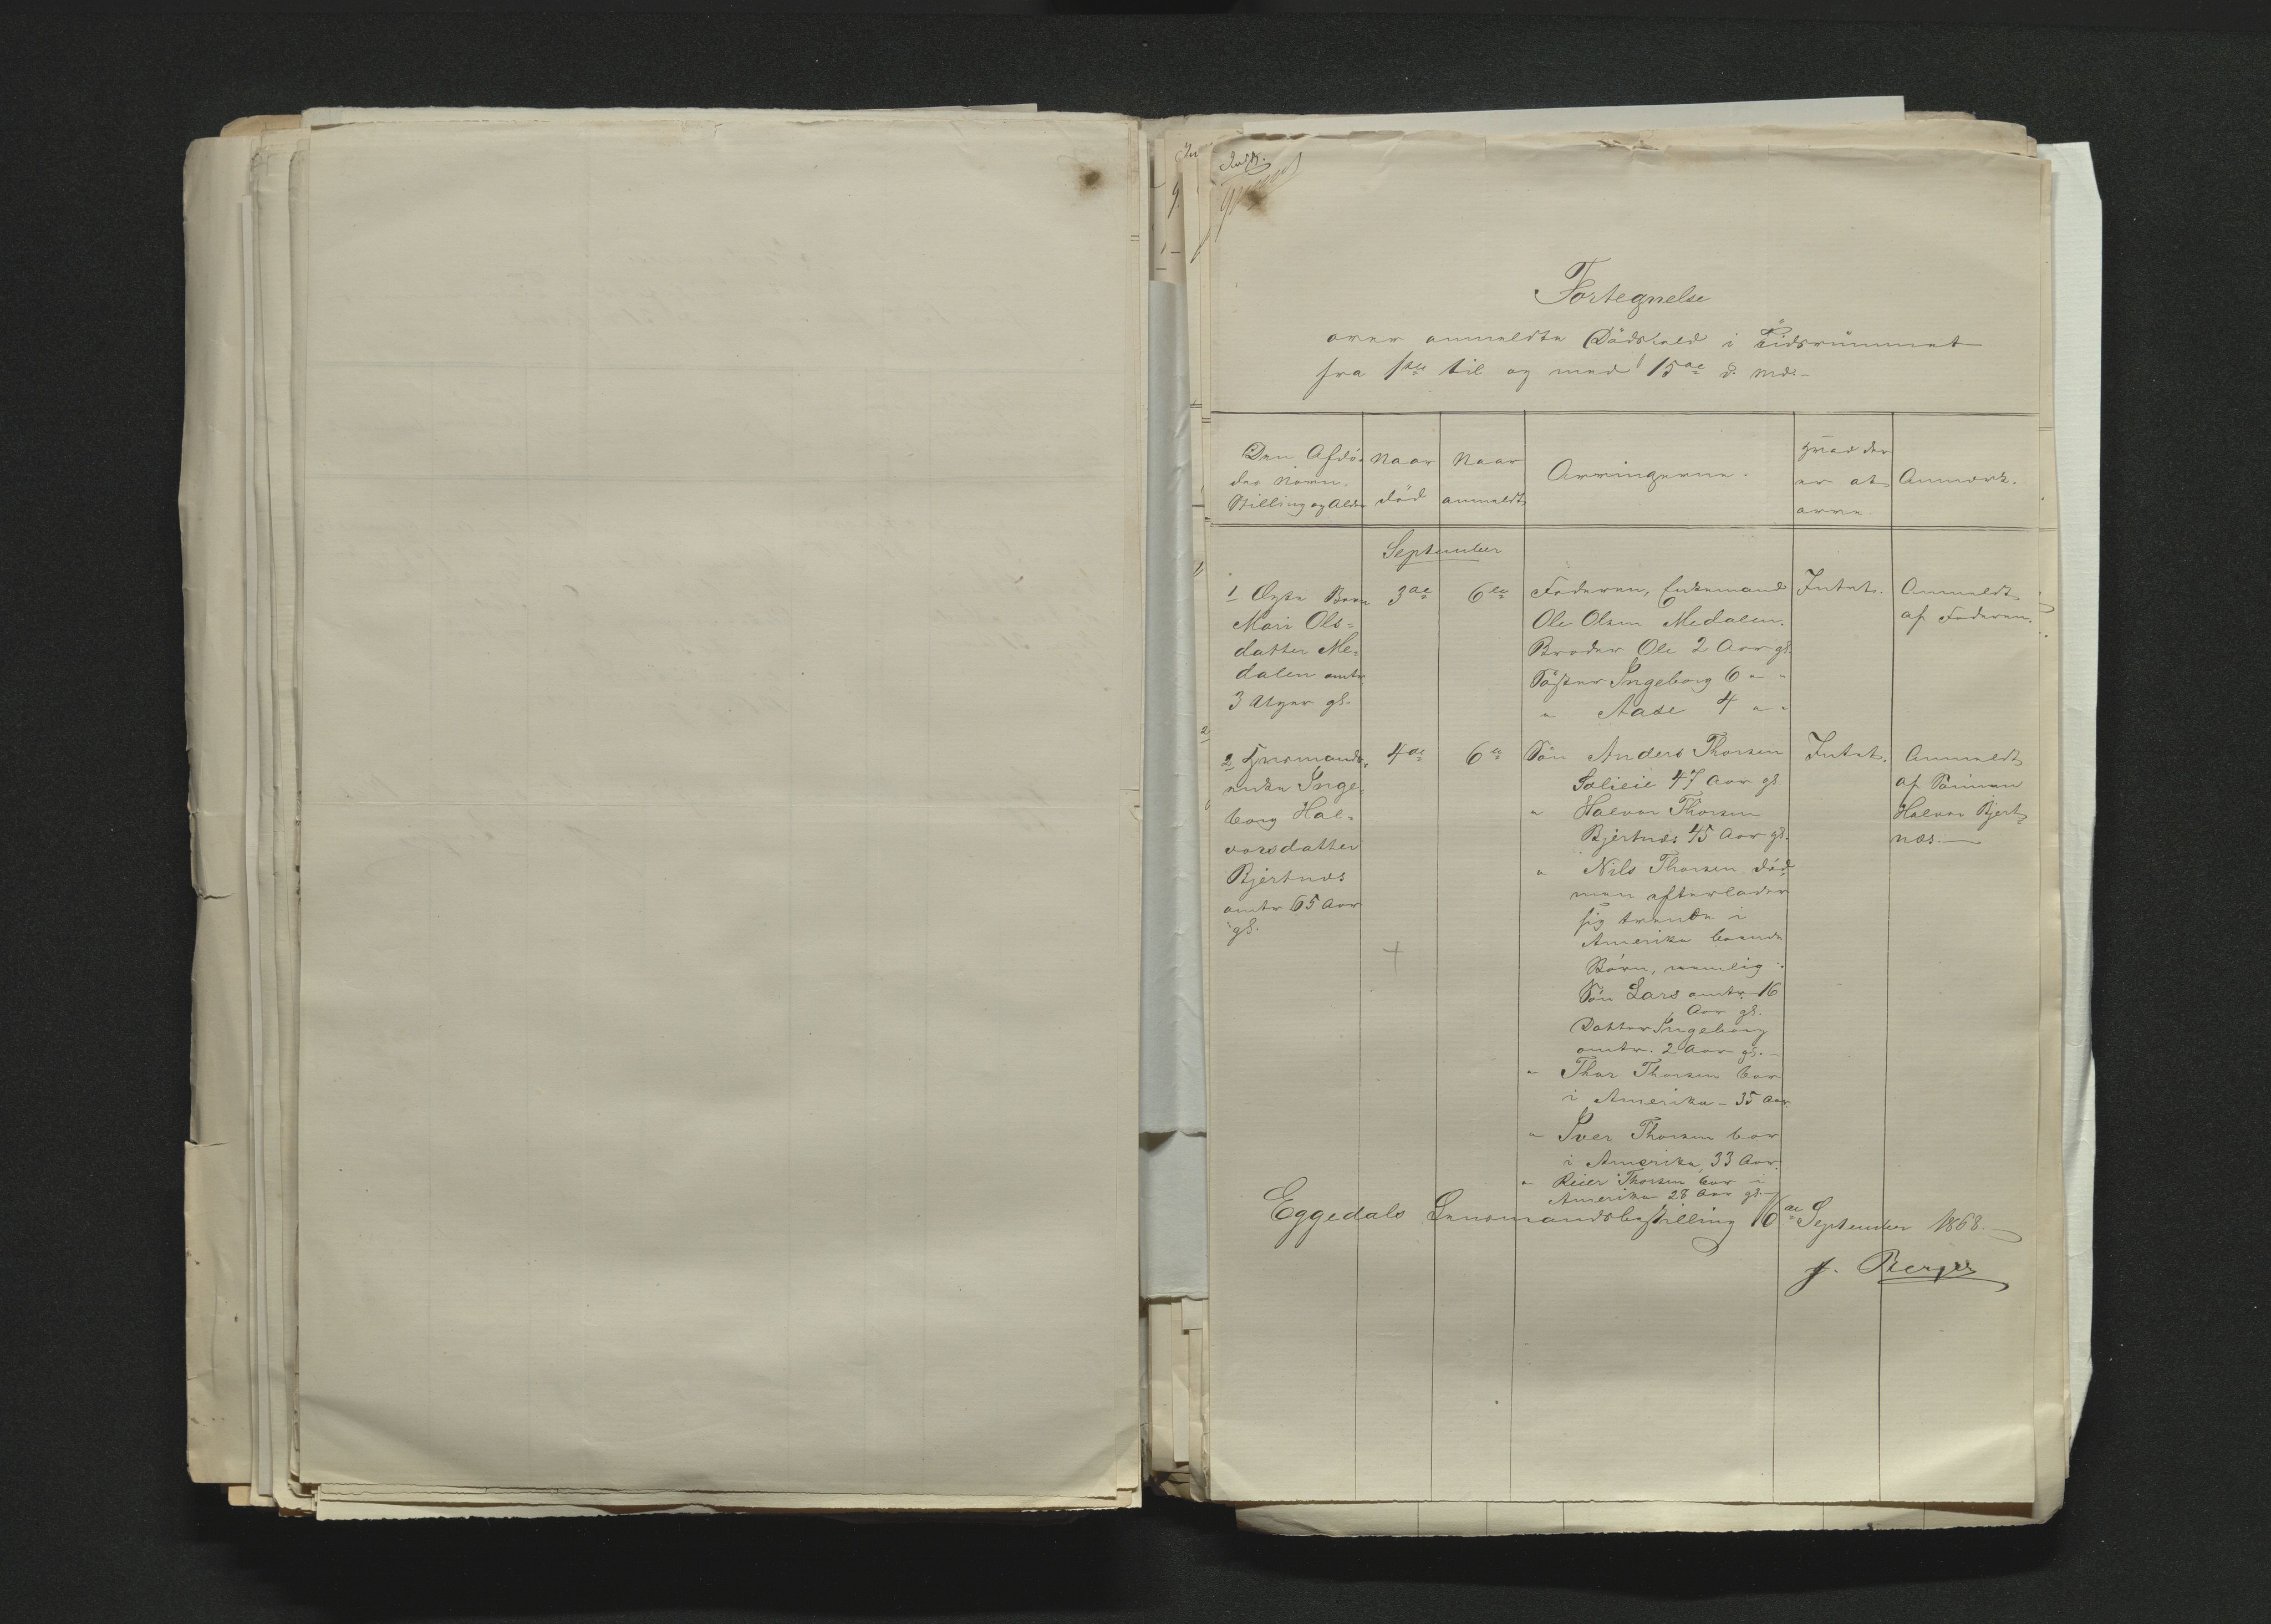 Fortegnelse
over anmeldte Dödsfald i Tidsrummet
fra 1ste til og med 15de d. Md.
Den Afdö-
des Navn,
Stilling og Alder
Naar
död
Naar
anmeldt
Arvingerne.
Hvad der
er at
arve
Anmærk.
September
1 Ægte Barn
Mari Ols=
datter Me=
dalen omtr.
3 Uger gl.
3de
6te
Faderen, Enkemand
Ole Olsen Medalen.
Broder Ole 2 Aar gl.
Söster Ingeborg 6 " "
" Aase 4 " "
Intet.
Anmeldt
af Faderen.
2 Husmands-
enke Inge=
borg Hal=
vorsdatter
Bjertnæs
omtr 65 Aar
gl.
4de
6te
Sön Anders Thorsen
Solieie 47 Aar gl.
" Halvor Thorsen
Bjertnæs 45 Aar gl.
" Nils Thorsen död
men efterlader
sig tvende i
Amerika boende
Börn, nemlig:
Sön Lars omtr. 16
Aar gl.
Datter Ingeborg
omtr. 2 Aar gl. -
" Thor Thorsen bor
i Amerika - 35 Aar
" Iver Thorsen bor
i Amerika, 33 Aar.
" Reier Thorsen bor i
Amerika 28 Aar gl.
Intet.
Anmeldt
af Sönnen
Halvor Bjert=
næs.
Eggedals Lensmandsbestilling 16de September 1868.
J. Berger